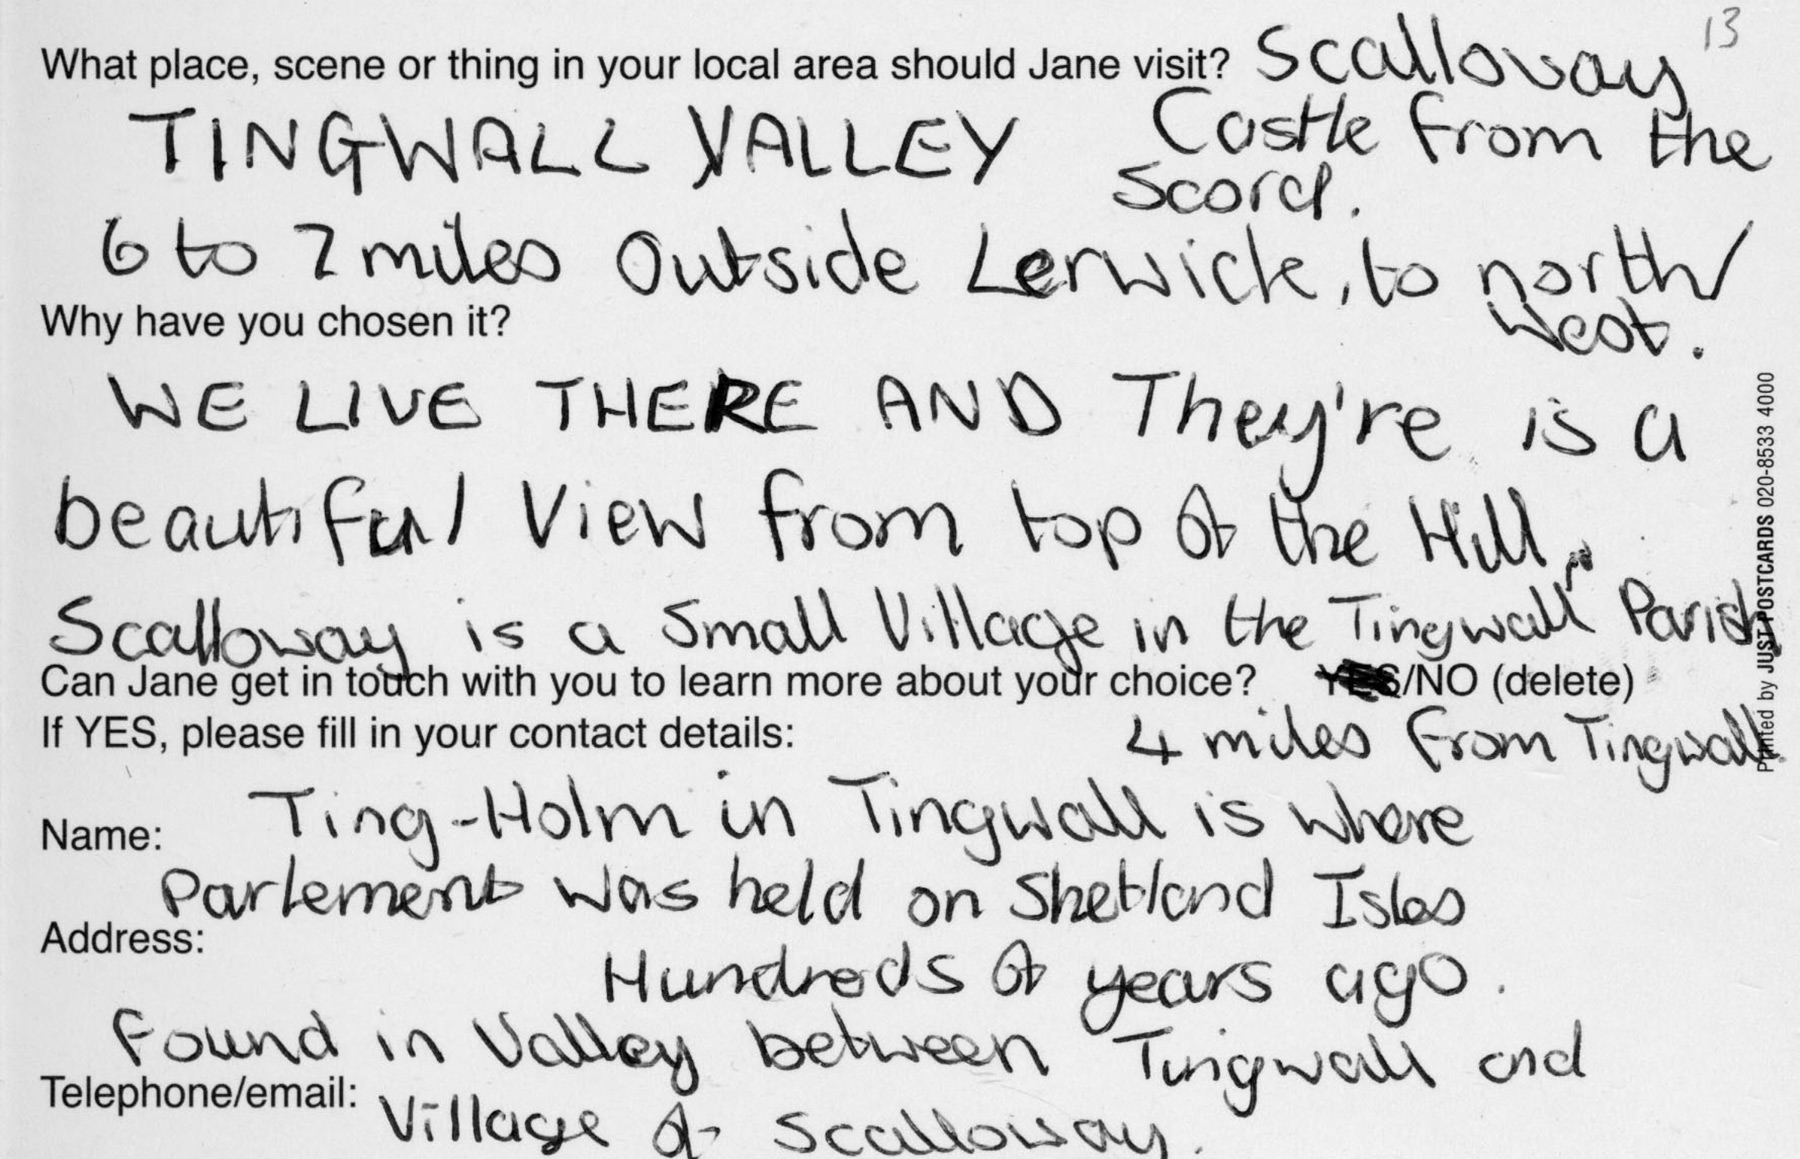 13
What place, scene or thing in your local area should Jane visit? Scalloway
TINGWALL VALLEY Castle from the
Scord.
6 to 7 miles Outside Lerwick, to north/
West.
Why have you chosen it?
WE LIVE THERE AND They're is a
beautiful View from top of the Hill.
Scalloway is a Small Village in the Tingwall Parish
Can Jane get in touch with you to learn more about your choice? YES/NO (delete)
If YES, please fill in your contact details:
4 miles from Tingwall
Name: Ting-Holm in Tingwall is where
Parlement was held on Shetland Isles
Address:
Hundreds of years ago.
Found in Valley between Tingwall and
Telephone/email: Village of Scalloway.
Printed by JUST POSTCARDS 020-8533 4000